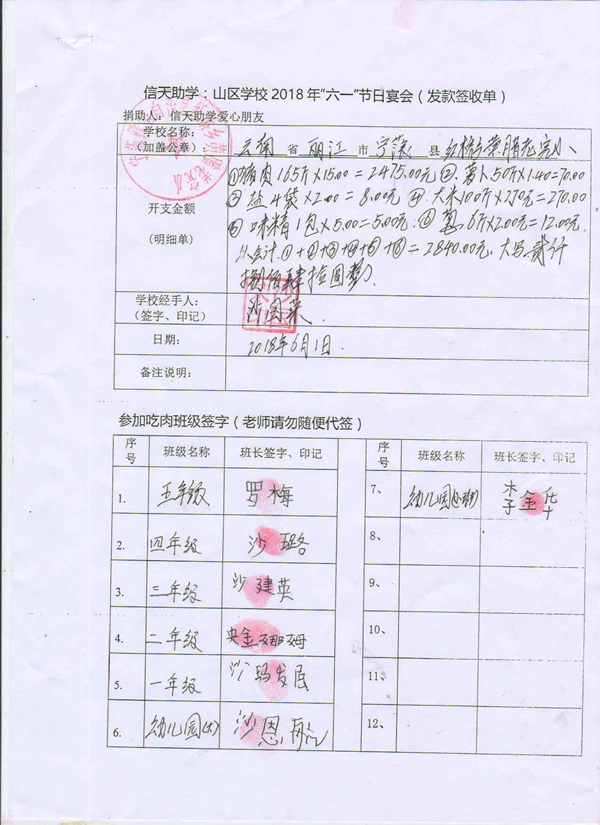 信天助学：山区学校2018年“六一”节日宴会（发款签收单）
捐助人：信天助学爱心朋友
学校名称：
（加盖公章）
云南 省 丽江 市 宁蒗 县 红桥 黄腊 完小
开支金额
（明细单）
①猪肉165斤×15.00=2475.00元 ②.萝卜50斤×1.40=70.00
③盐4袋×2.00=8.00元 ④.大米100斤×2.70元=270.00
⑤味精1包×5.00=5.00元.⑥葱6斤×2.00元=12.00元.
以合计.①+②+③+④+⑤+⑥=2840.00元.大写贰仟
捌佰肆拾圆整
学校经手人：
（签字、印记）
日期：
2018年6月1日.
备注说明：
参加吃肉班级签字（老师请勿随便代签）
序号 班级名称 班长签字、印记 序号 班级名称 班长签字、印记
1. 五年级 罗梅 7、 幼儿园 李金华
2. 四年级 沙璐 8、
3. 三年级 沙建英 9、
4. 二年级 央金娜姆 10、
5. 一年级 沙玛发 11、
6. 幼儿园(大) 沙恩 12、